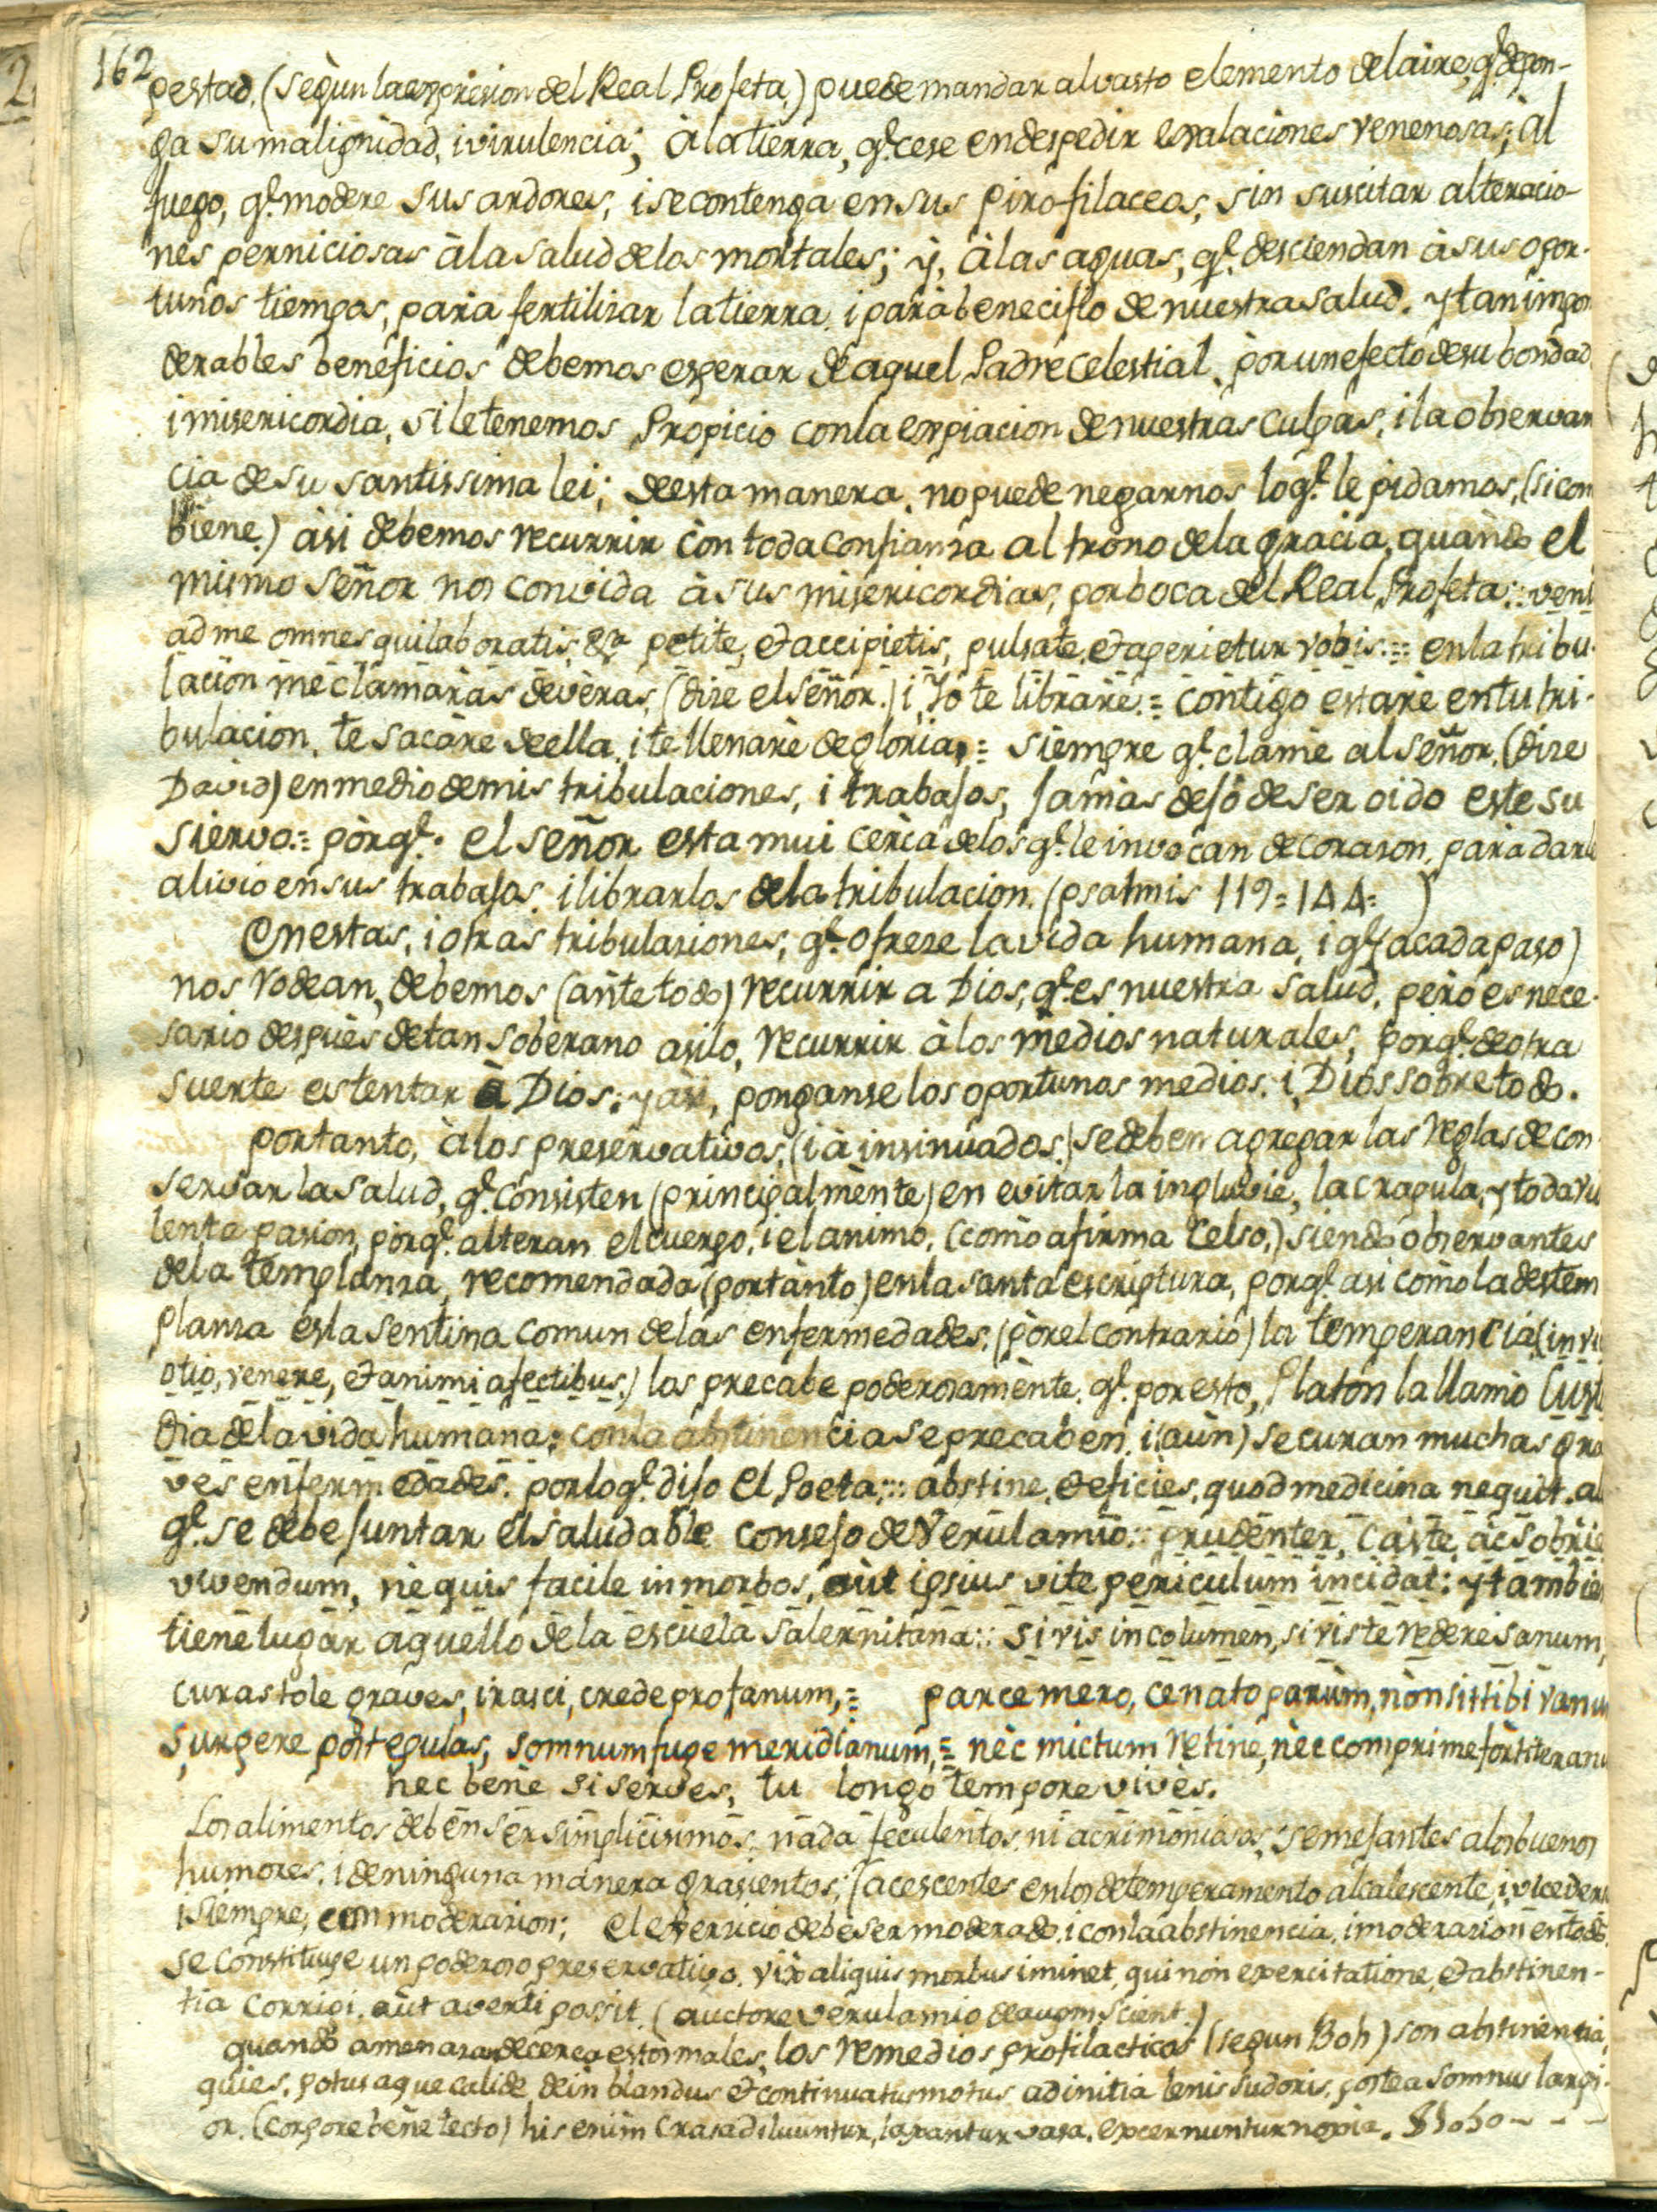 162
pestad. (segùn la expresion del Real Profeta.) puede mandar al vasto elemento del aire, q.e depon-
ga su malignidad, i virulencia; à la tierra, q.e cese en despedir exalaciones venenosas; àl
fuego, q.e modere sus ardores, i se contenga en sus piro-filaceos, sin suscitar alteracio-
nes perniciosas à la salud de los mortales; y, à las aguas, q.e desciendan à sus opor-
tunos tiempos, para fertilizar la tierra, i para beneciflo de nuestra salud. y tan impon
derables beneficios debemos esperar de aquel Padre celestial, por un efecto de su bondad
i misericordia, si le tenemos Propicio con la expiacion de nuestras culpas, i la observan
cia de su santissima lei; de esta manera, no puede negarnos lo q.e le pidamos, (si con
biene.) àsi debemos recurrir còn toda confianza al trono de la gracia, quàndo el
mismo Señor nos convida à sus misericordias, por boca del Real Profeta:: veni
ad me omnes qui laboratis, &a petite, et accipietis, pulsate, et aperietur vobis::= en la tribu-
lacion me clamaràs de veras, (dize el señor.) i, Yo te librarè.= contigo estarè en tu tri-
bulacion, te sacàre de ella, i te llenarè de gloria,= siempre q.e clamè al señor, (dize
David) en medio de mis tribulaciones, i trabajos, jamàs dejò de ser oido este su
siervo:= pòrq.e el señor esta mui cerca de los q.e le invocan de corazon, para darle
alivio en sus trabajos, i librarlos de la tribulacion. (psalmis 119= 144= )
En estas, i otras tribulaziones, q.e ofreze la vida humana, i q.e (a cada paso)
nos rodean, debemos (ànte todo) recurrir a Dios, q.e es nuestra salud, però es nece-
sario despuès de tan soberano asilo, recurrir à los medios naturales, porq.e de otra
suerte es tentar à Dios: y asi, ponganse los oportunos medios, i, Dios sobre todo.
por tanto, à los preservativos, (ià insinuados.) se deben agregar las reglas de con
servar la salud, q.e consisten (principalmènte) en evitar la ingluvie, la crapula, y toda vio
lenta pasion, pòrq.e alteran el cuerpo, i el animo, (como afirma Celso,) siendo observantes
de la templanza, recomendada (por tànto) en la santa escriptura, porq.e asi como la destem
planza es la sentina comun de las enfermedades, (pòr el contrario) la temperancia, (in vi
otio, venere, et animi afectibus.) las precabe poderosamènte. q.e por esto, Platòn la llamò Custo
dia de la vida humana; con la abstinencia se precaben, i (aùn) se curan muchas gra
ves enfermedades. por lo q.e dijo el Poeta::: abstine, et eficies, quod medicina nequit. al
q.e se debe juntar el saludable consejo de Verulamio:: prudenter, caste, ac sobrie
vivendum, nè quis facile in morbos, aùt ipsius vite periculum incidat: y tambien
tiene lugar aquello de la escuela salernitana:: si vis incolumen, si vis te redere sanum,
curas tole graves, irasci, crede profanum,= parce mero, cenato parùm, nòn sit tibi vanum
surgere post epulas, somnum fuge meridianum,= nèc mictum retine, nèc comprime fòrtiter anu
hec benè si serves, tu longo tempore vivès.
Los alimentos debèn sèr simplicisimos, nàda feculentos, ni acrimoniosos, semejantes a los buenos
humores, i de ninguna manera grasientos, (acescentes en los de temperamento alcalescente, i, vice versa
i siempre, con moderazion; el exerzicio debe ser moderado, i con la abstinencia, i moderazion en todo,
se constituye un poderoso preservativo. vix aliquis morbus iminet, qui nòn exercitatione, et abstinen-
tia corrigi, aùt averti possit. (auctore verulamio de augm. scient.)
quando amenazan de cerca estos males, los remedios profilacticos (segun Boh) son abstinentia,
quies, potus aque calide, dein blandus et continuatus motus ad initia lenis sudoris, postea somnus largi-
or. (corpore bene tecto) his enim crasa diluuntur, laxantur vasa, excernuntur noxia.